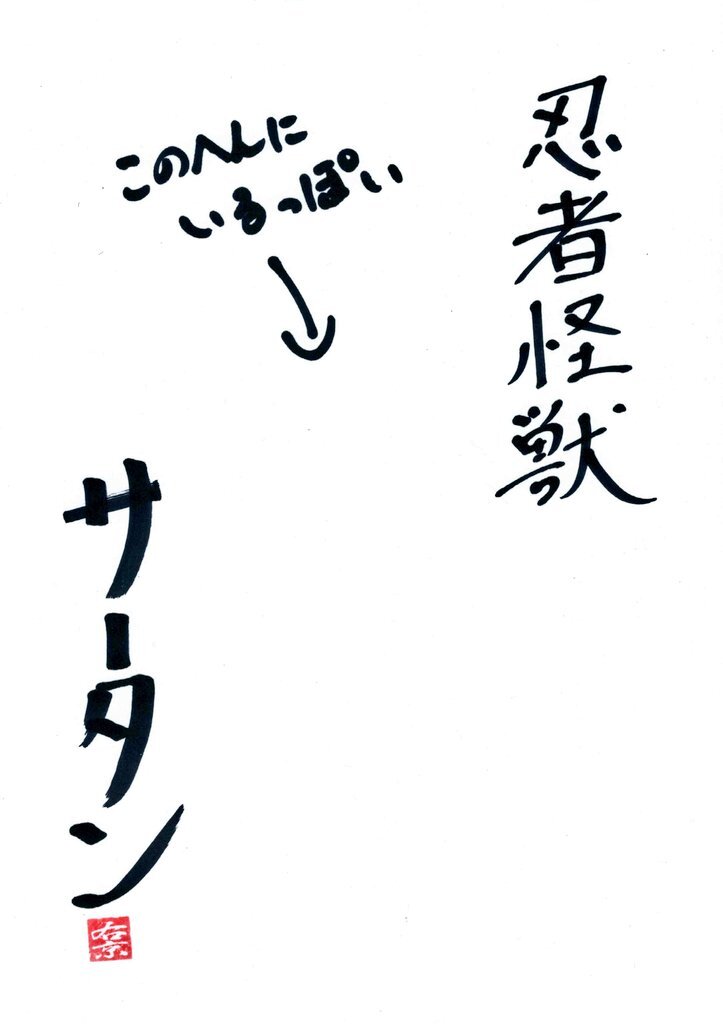 忍者怪獣
このへんに
いるっぽい
サータン
右京